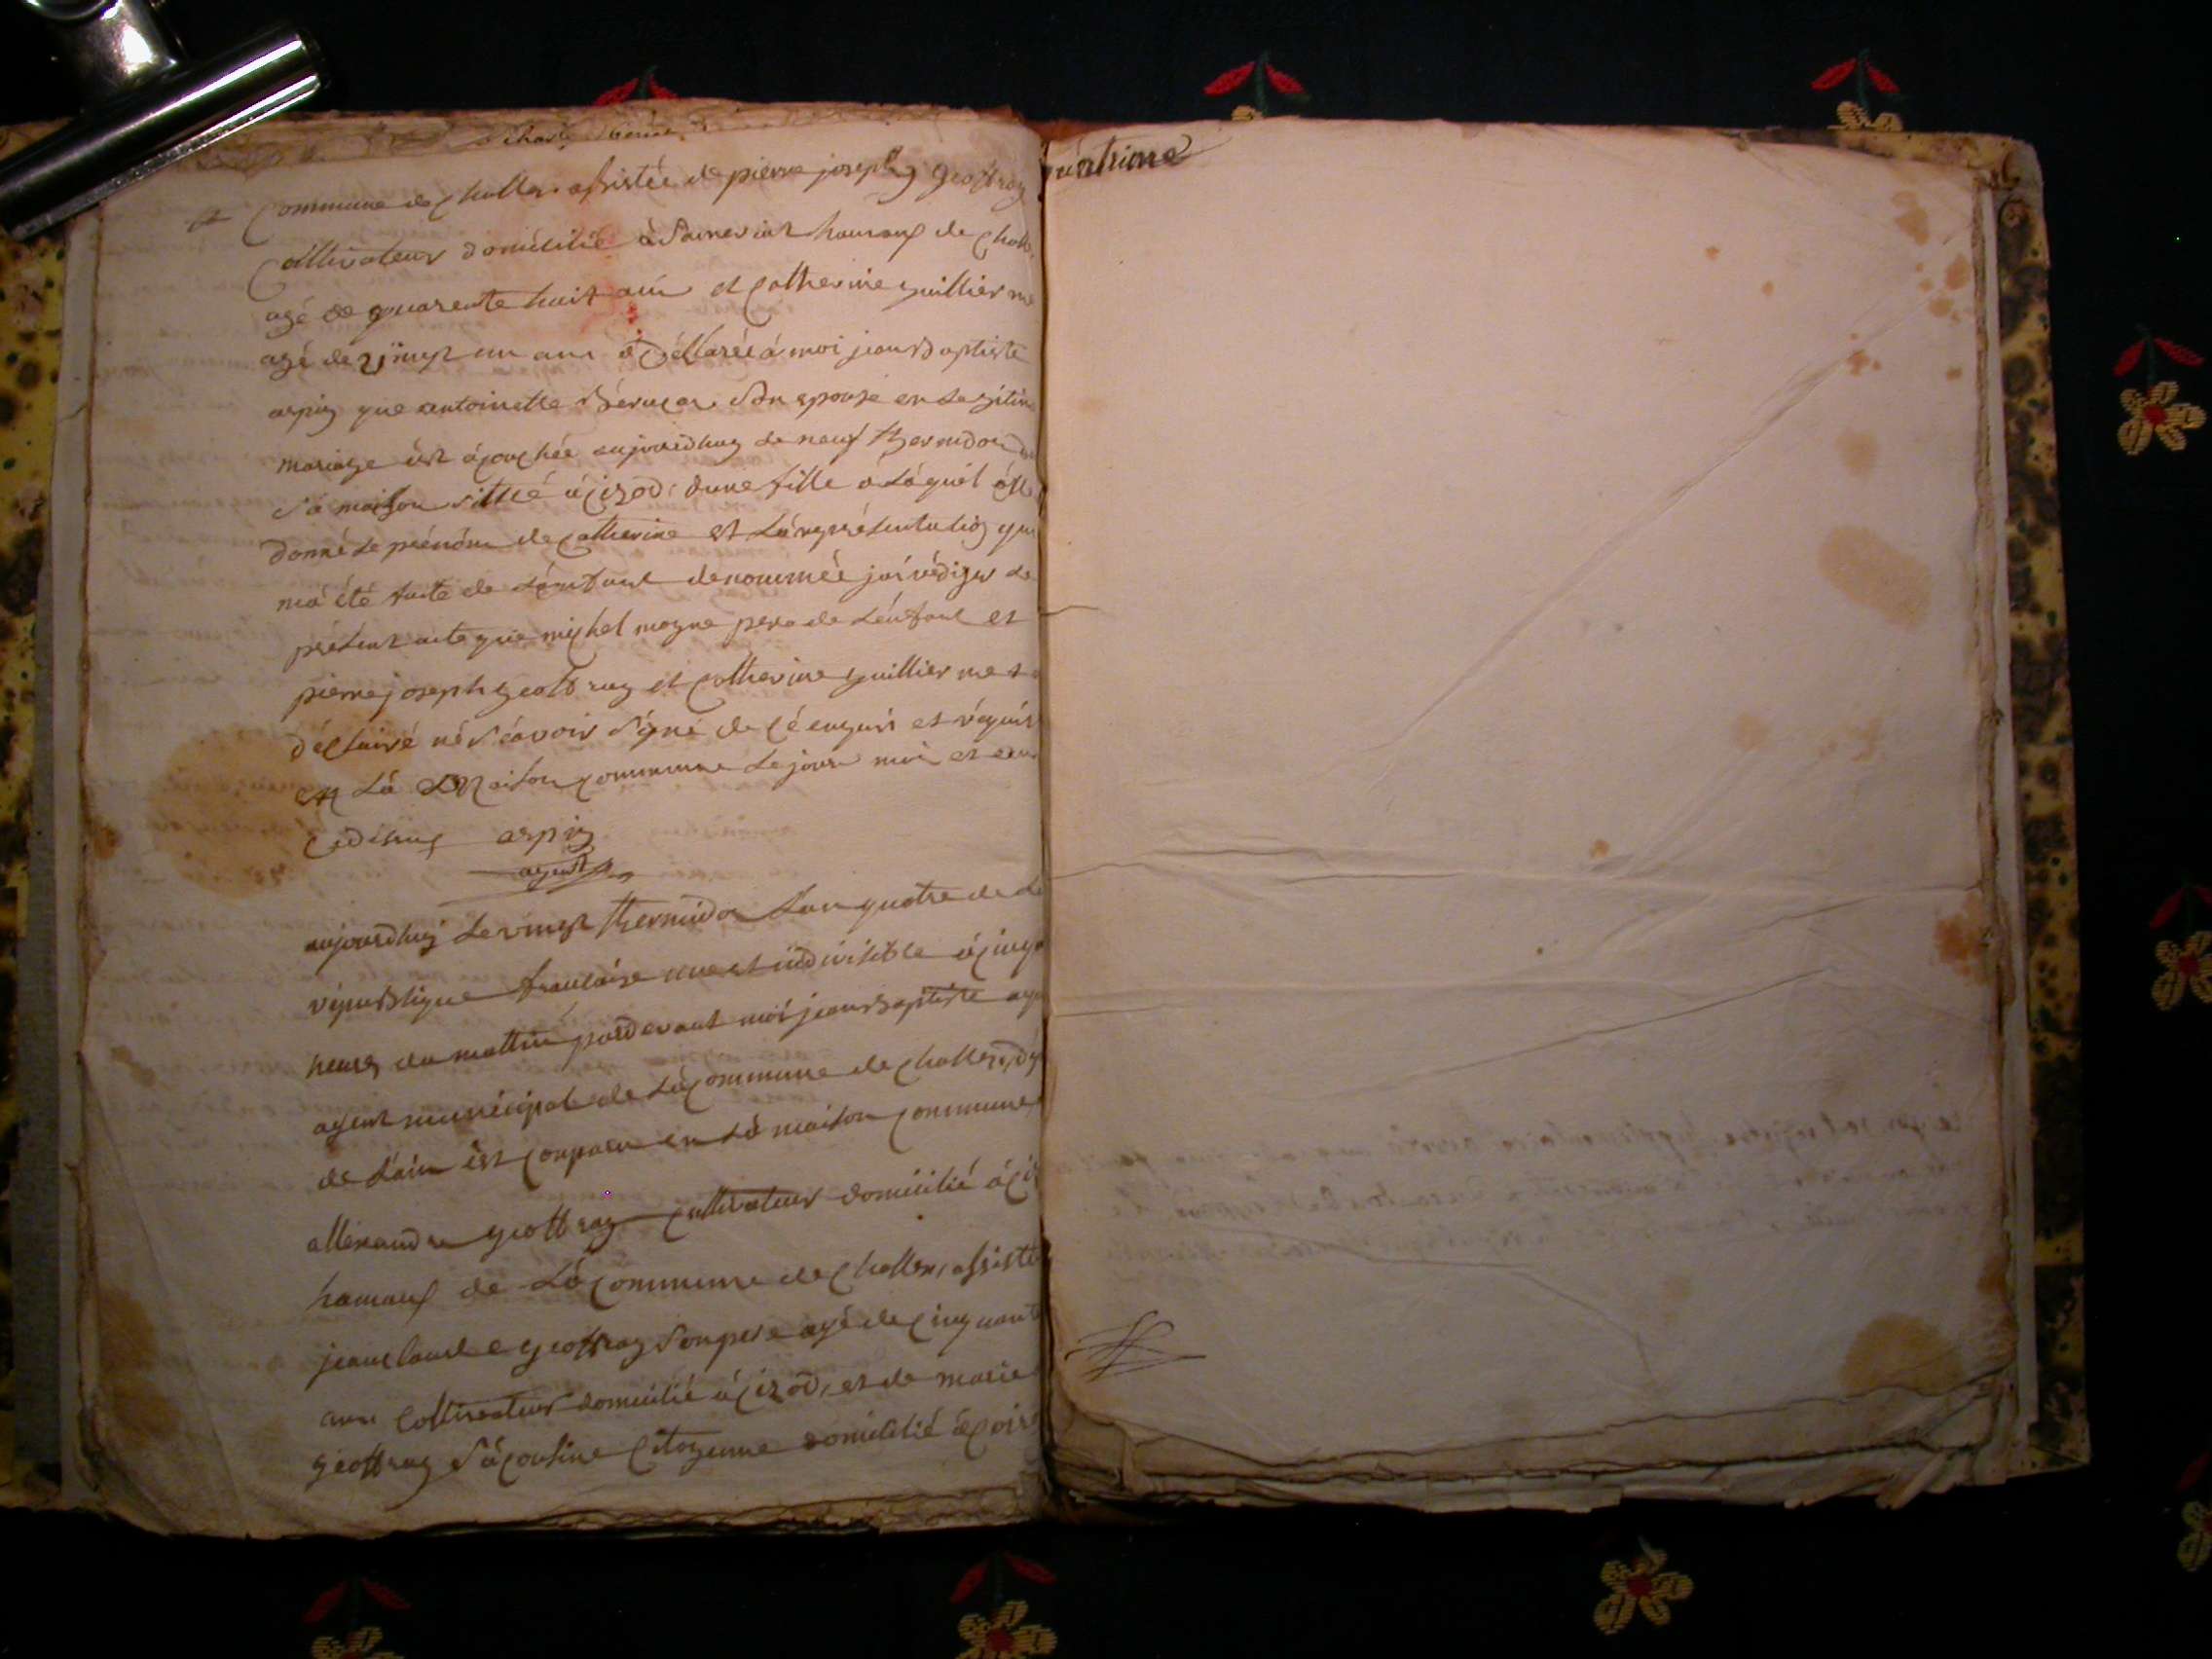 commune de challex assistée de pierre joseph geoffray
Cultivateur domicilié à hamaux de challe
agé de quarente huit ans et Catherine guillierme
agé de vingt un ans à déllarée à moi jean baptiste
arpin que antoinette Son epouse en Legitim
mariage est acouchée aujourdhuy Le neuf thermidor
Sa maison sittué à cizod, dune fille a Laquél
donné Le prénom de Catherine et La représentation que
má été faite de Lenfant denommée jai rédiger Le
présent acte que michel magne pere de Lenfant et
pierre joseph geoffray et Catherine guillierme
déclairé né Scavoir Signé de cé enquis et réquis
en La Maison commune Le jour moi et an
Cidesus arpin
agent
aujourdhuy Le vingt thermidor Lan quatre de La
république francaise une et indivisible à cinq
heures du mattin pardevant moi jean baptiste arp
agent municipal de La commune de challex, dp
de Lain est comparu en La maison commune
allexandre geoffray Cultivateur domicilié à ciz
hamaux de La commune de challex, assisté
jean claude geoffray Son pere agé de cinquante
ans Cultivateur domicilié à cizod, et de marie
geoffray Sa cousine Citoyenne domicilié à